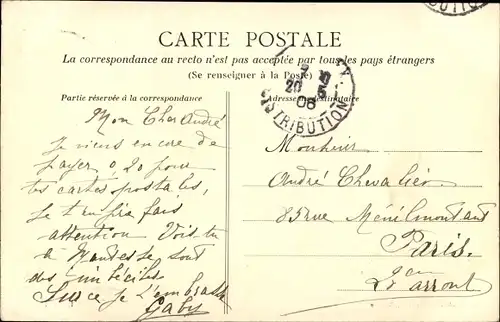 CARTE POSTALE
La correspondance au recto n'est pas acceptée par tous les pays étrangers
(Se renseigner à la Poste)
Partie réservée à la correspondance
Adresse du destinataire
20
06
DISTRIBUTION
Mon Cher André
Je viens encore de
payer 0,20 pour
tes cartes postales,
je t'en fais
attention Vois tu
a Mantes se sont
des imbéciles
Sur ce je t'embrasse
Gaby
Monsieur
André Chevalier
85 rue Ménilmontant
Paris.
arront